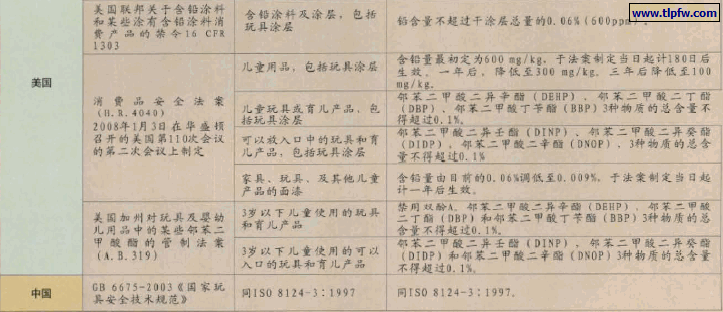 www.tlpfw.com
美国
美国联邦关于含铅涂料
和某些涂有含铅涂料消
费产品的禁令16 CFR
1303
含铅涂料及涂层，包括
玩具涂层
铅含量不超过干涂层总量的0.06%(600ppm)。
消费品安全法案
(H.R.4040)
2008年1月3日在华盛顿
召开的美国第110次会议
的第二次会议上制定
儿童用品，包括玩具涂层
含铅量最初定为600 mg/kg，于法案制定当日起计180日后
生效。一年后，降低至300 mg/kg，三年后降低至100
mg/kg。
儿童玩具或育儿产品，包
括玩具涂层
邻苯二甲酸二异辛酯(DEHP)、邻苯二甲酸二丁酯
(DBP)、邻苯二甲酸丁苄酯(BBP)3种物质的总含量不
得超过0.1%。
可以放入口中的玩具和育
儿产品，包括玩具涂层
邻苯二甲酸二异壬酯(DINP)、邻苯二甲酸二异癸酯
(DIDP)、邻苯二甲酸二辛酯(DNOP)、3种物质的总含
量不得超过0.1%
家具、玩具、及其他儿童
产品的面漆
含铅量由目前的0.06%调低至0.009%，于法案制定当日起
计一年后生效。
美国加州对玩具及婴幼
儿用品中的某些邻苯二
甲酸酯的管制法案
(A.B.319)
3岁以下儿童使用的玩具
和育儿产品
禁用双酚A、邻苯二甲酸二异辛酯(DEHP)、邻苯二甲酸
二丁酯(DBP)和邻苯二甲酸丁苄酯(BBP)3种物质的总
含量不得超过0.1%。
3岁以下儿童使用的可以
入口的玩具和育儿产品
邻苯二甲酸二异壬酯(DINP)，邻苯二甲酸二异癸酯
(DIDP)和邻苯二甲酸二辛酯(DNOP)3种物质的总含量
不得超过0.1%。
中国
GB 6675-2003《国家玩
具安全技术规范》
同ISO 8124-3:1997
同ISO 8124-3:1997。